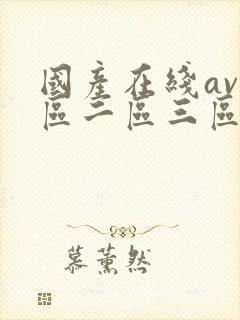 國產在綫av
區二區三區
慕薰然